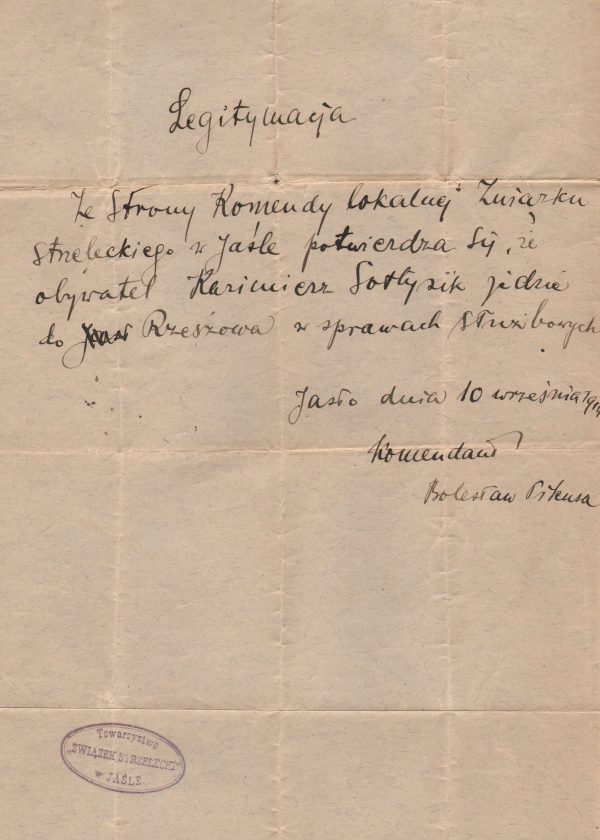 Legitymacja
Ze strony Komendy lokalnej Związku
strzeleckiego w Jaśle potwierdza się, że
obywatel Kazimierz Sołtysik jedzie
do Rzeszowa w sprawach służbowych
Jasło dnia 10 września 1914
Komendant
Bolesław Pikusa
Towarzystwo
„ZWIĄZEK STRZELECKI"
w JAŚLE.